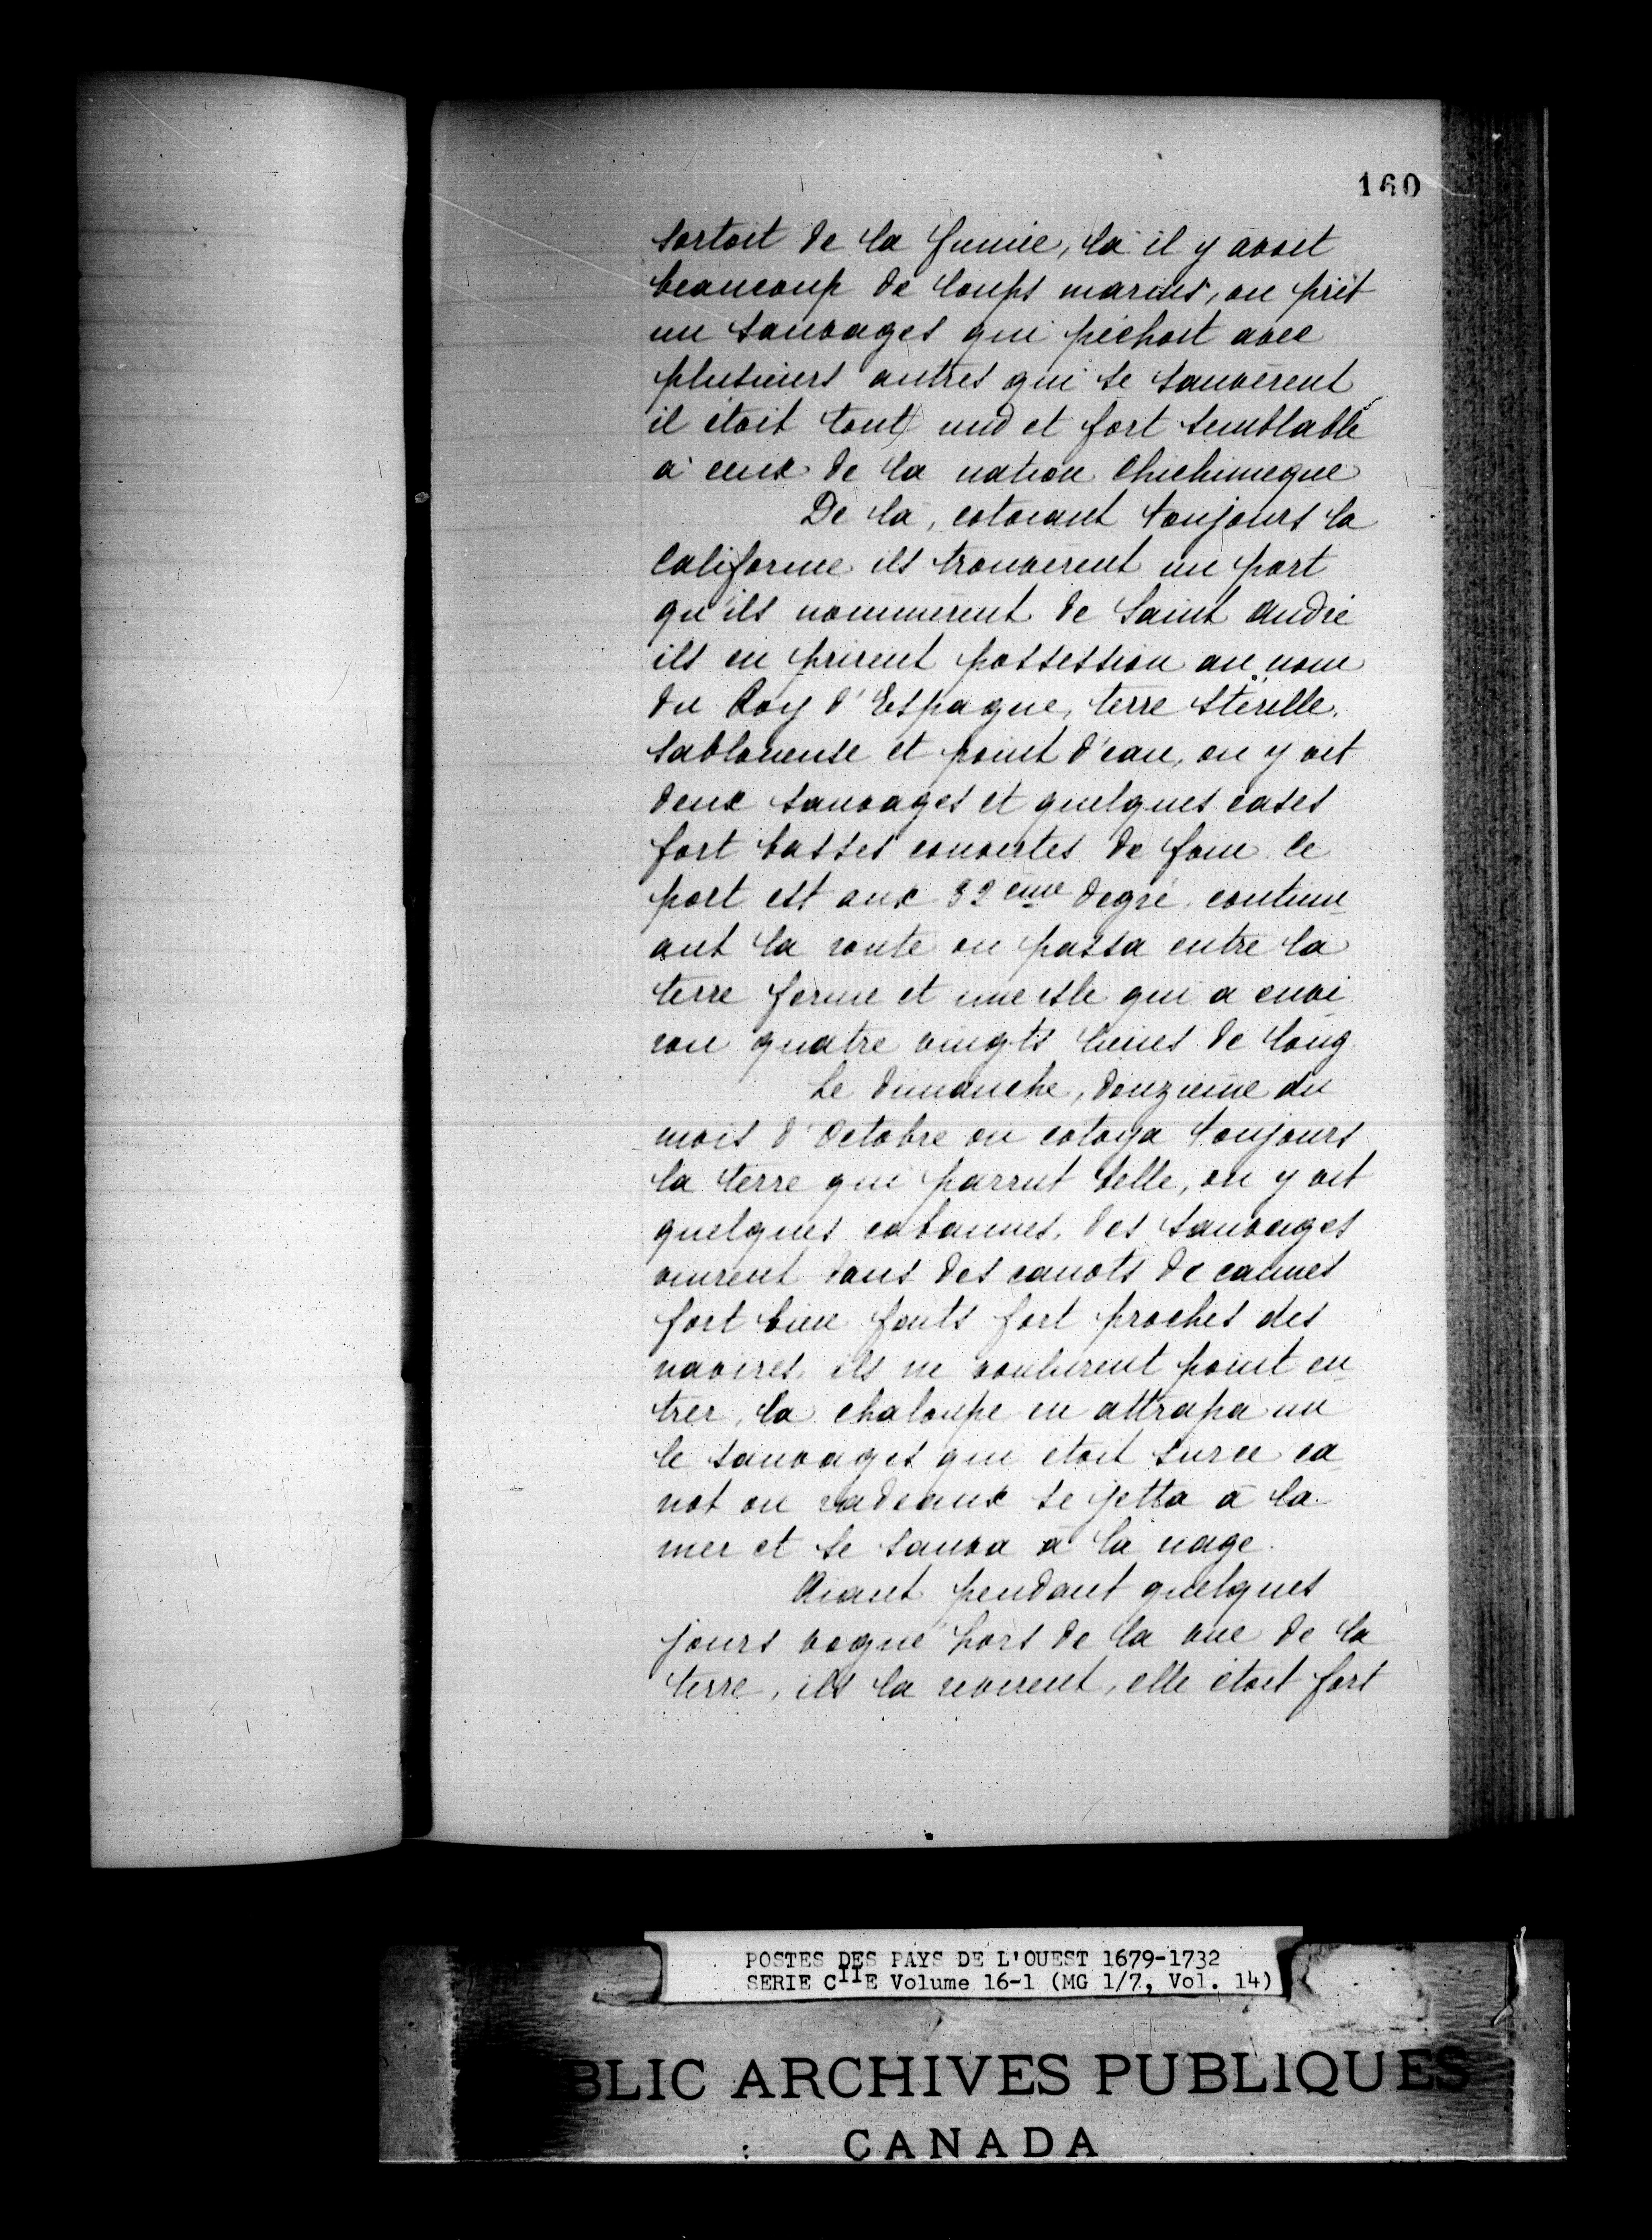 160
sortoit de la fumée, là il y avoit
beaucoup de loups marins, on prit
un sauvages qui pêchoit avec
plusieurs autres qui se sauvèrent
il étoit tout nud et fort semblable
à ceux de la nation Chichimeque
De là, cotoiant toujours la
Californie ils trouvèrent un port
qu'ils nommèrent de Saint André
ils en prirent possession au nom
du Roy d'Espagne, terre stérille,
sabloneuse et point d'eau, on y vit
deux sauvages et quelques cases
fort basses couvertes de foin. Ce
port est aux 32 ème degré, continu-
ant la route on passa entre la
terre ferme et une isle qui a envi-
ron quatre vingts lieues de long
Le dimanche, douzième du
mois d'Octobre on cotoya toujours
la terre qui parrut belle, on y vit
quelques cabannes, des sauvages
vinrent dans des canots de cannes
fort bien faits fort proches des
navires, ils ne voulurent point en-
trer, la chaloupe en attrapa un
le sauvages qui étoit sur ce ca-
not ou radeaux se jetta à la
mer et se sauva à la nage.
Aiant pendant quelques
jours vogué hors de la vue de la
terre, ils la revirent, elle étoit fort
POSTES DES PAYS DE L'OUEST 1679-1732
SERIE CIIE Volume 16-1 (MG 1/7, Vol. 14)
BLIC ARCHIVES PUBLIQUES
CANADA